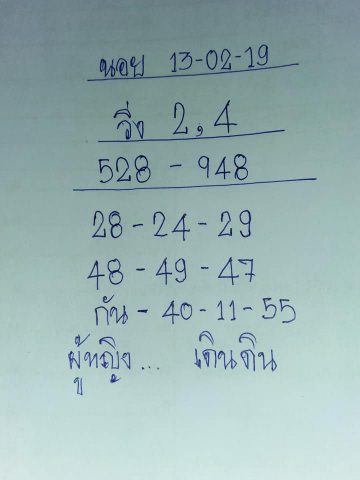 นอย 13-02-19
วิ่ง 2,4
528 - 948
28 - 24 - 29
48 - 49 - 47
กัน - 40 - 11 - 55
ผู้หญิง... เดินดิน